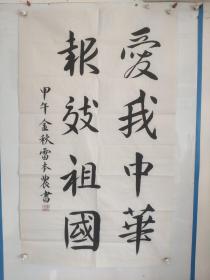 愛我中華
報效祖國
甲午金秋雷本農書